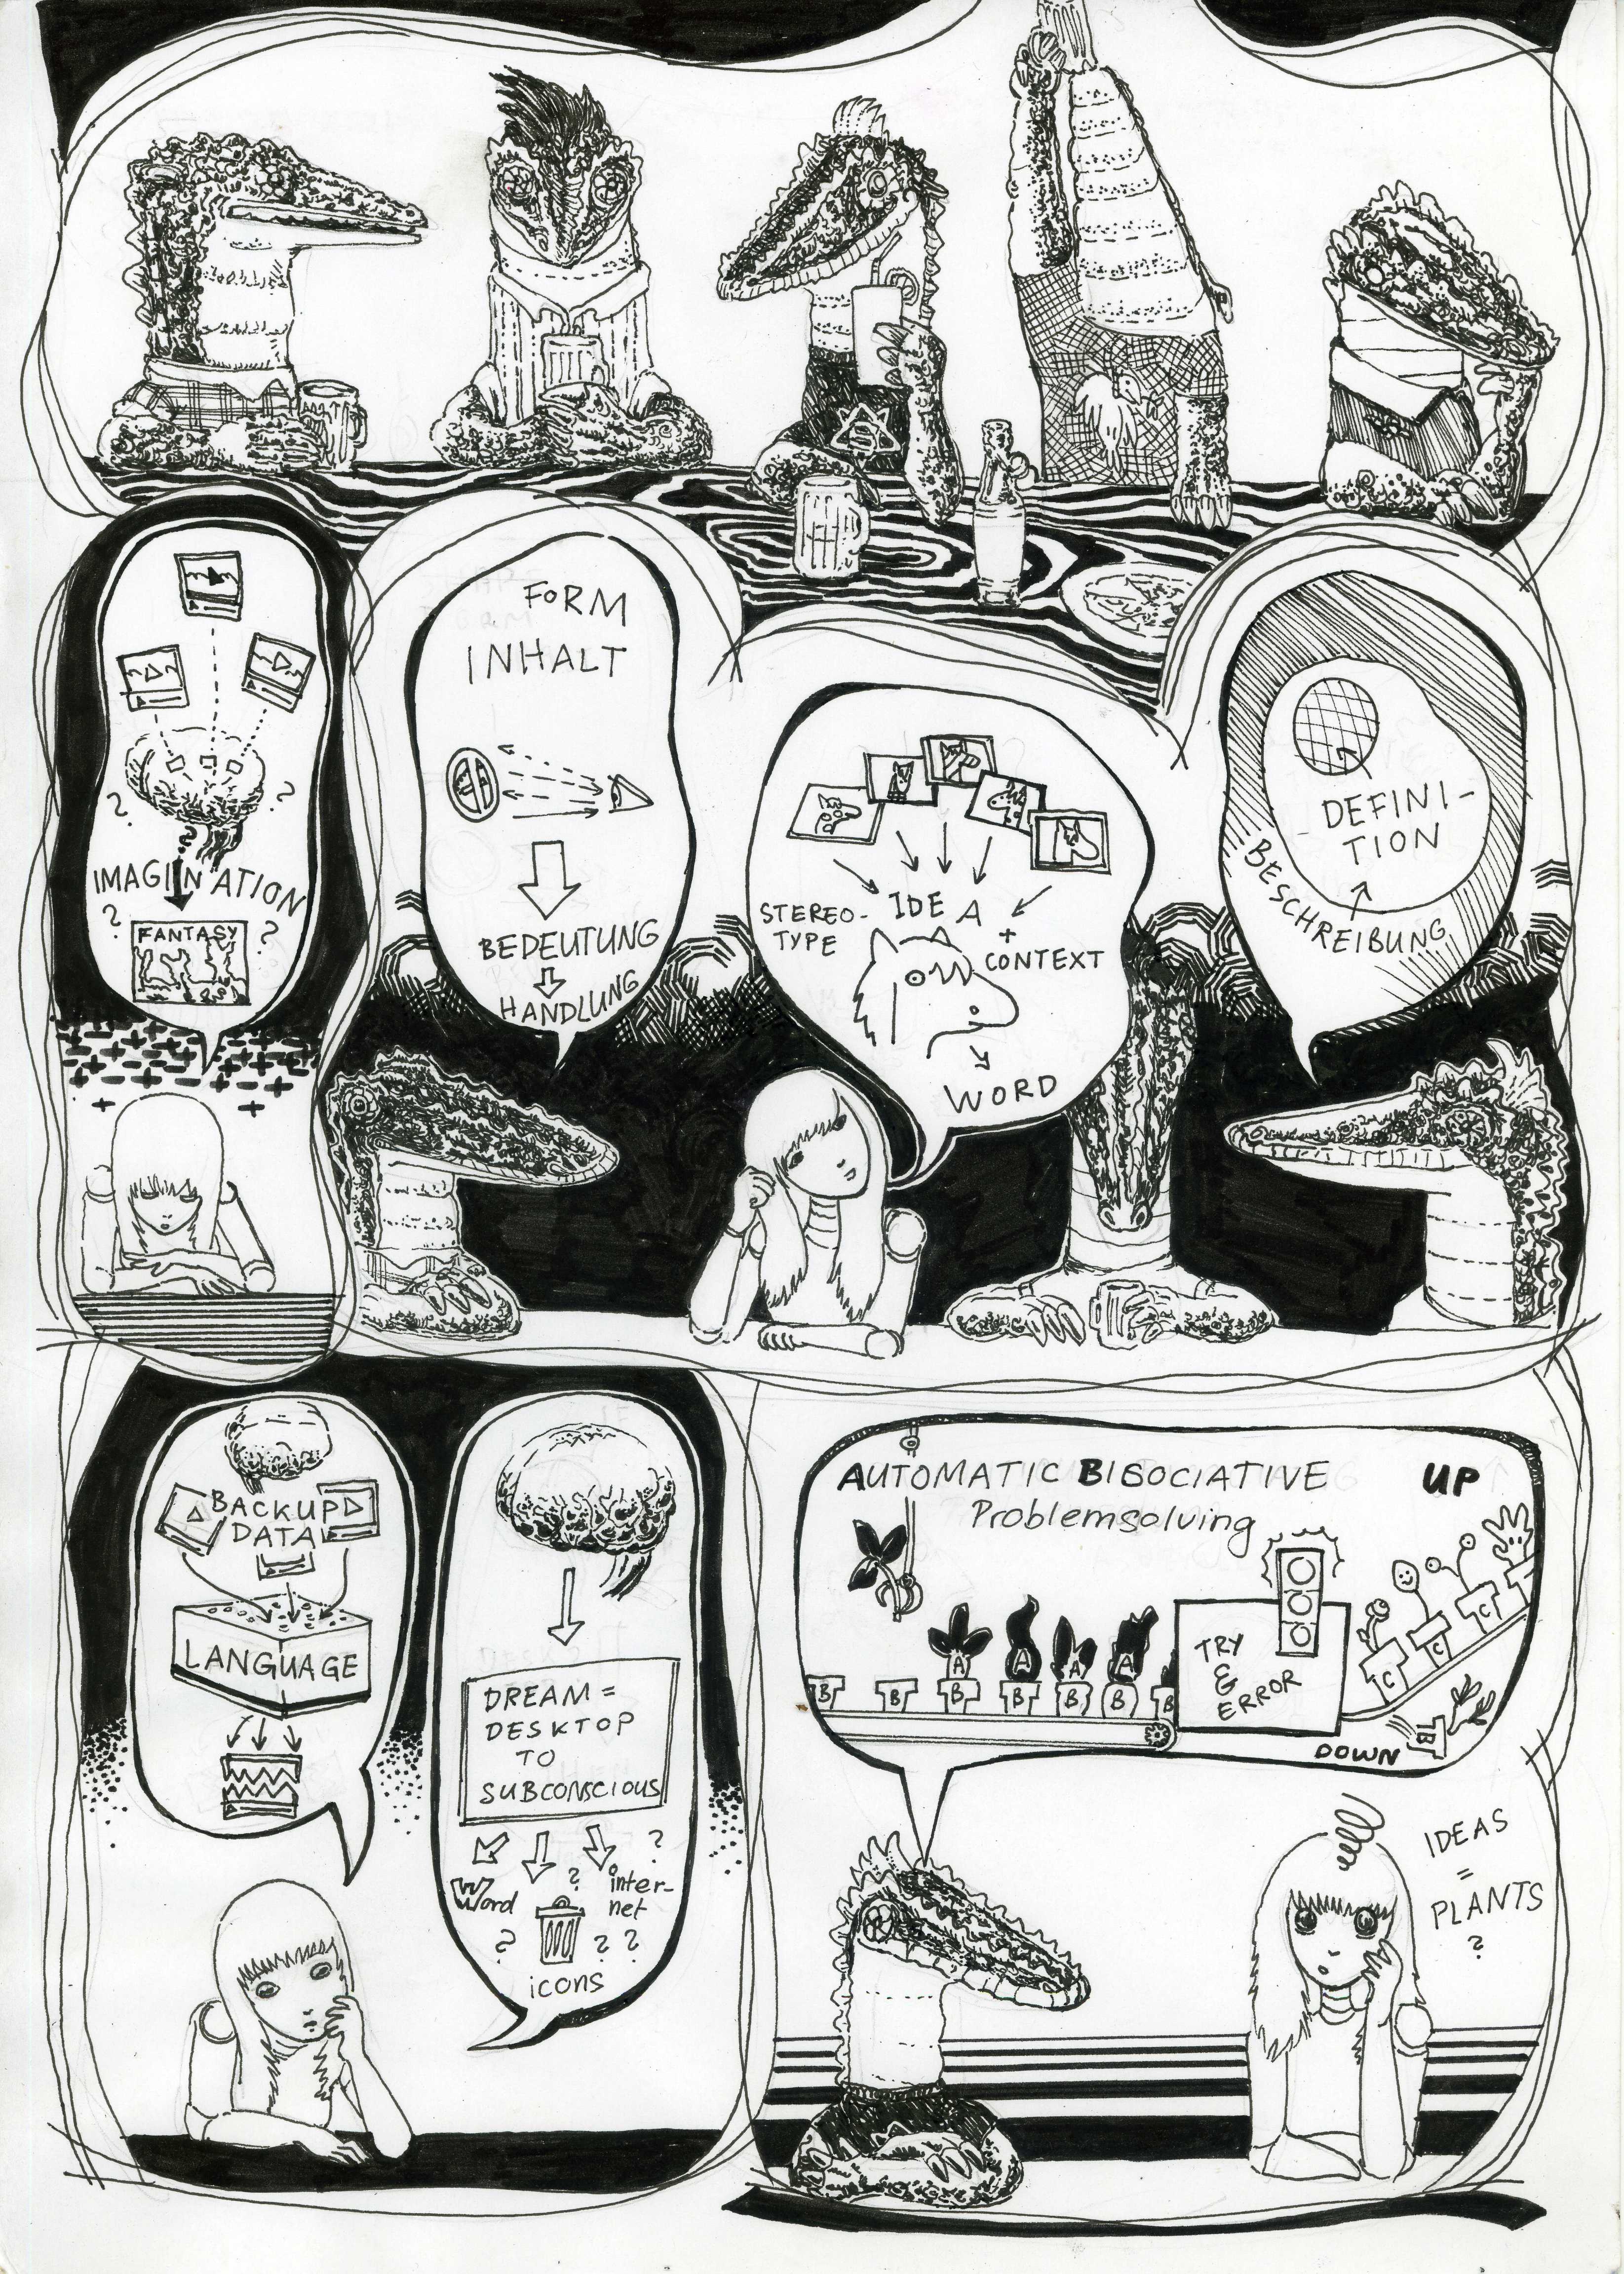 IMAGINATION
FANTASY
FORM
INHALT
BEDEUTUNG
HANDLUNG
STEREO-
TYPE
IDEA
+
CONTEXT
WORD
DEFINI-
TION
BESCHREIBUNG
BACKUP
DATA
LANGUAGE
DREAM =
DESKTOP
TO
SUBCONSCIOUS
Word
inter-
net
icons
AUTOMATIC BISOCIATIVE
Problemsolving
UP
A A A A
B B B B B B B
TRY
&
ERROR
C C C C
B
DOWN
IDEAS
=
PLANTS
?